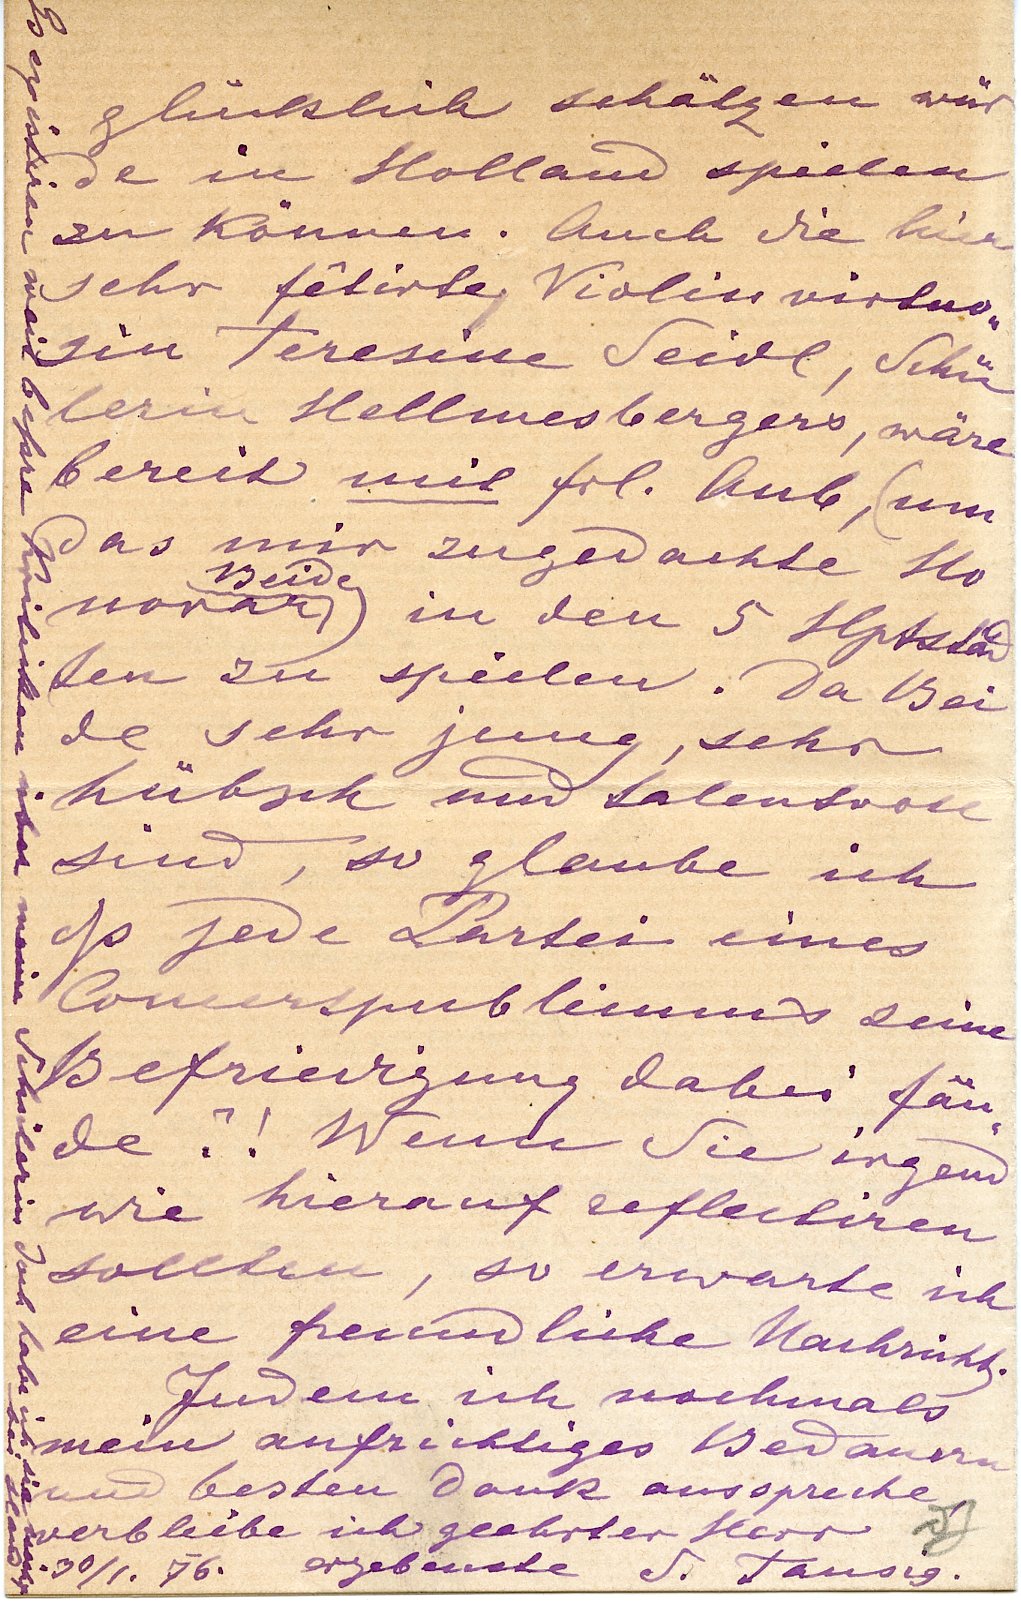 glücklich schätzen wür
de in Holland spielen
zu können. Auch die hier
sehr fêtirte, Violinvirtuo„
sin Teresine Seidl, Schü„
lerin Hellmesbergers, wäre
bereit mit Frl. Aub, (um
das mir zugedachte Ho
norar) Beide in den 5 Hptstäd
ten zu spielen. Da Bei
de sehr jung, sehr
hübsch und talentvoll
sind, so glaube ich
dß jede Partei eines
Concertspublikums seine
Befriedigung dabei fän„
de ?! Wenn Sie irgend
wie hierauf reflectiren
sollten, so erwarte ich
eine freundliche Nachricht.
Indem ich nochmals
mein aufrichtiges Bedauern
und besten Dank ausspreche,
verbleibe ich geehrter Herr
30/1. 76. ergebenste S. Tausig.
Es existiren weit bessere Kritiken über meine Schülerin doch habe ich sie nicht
bei Hand